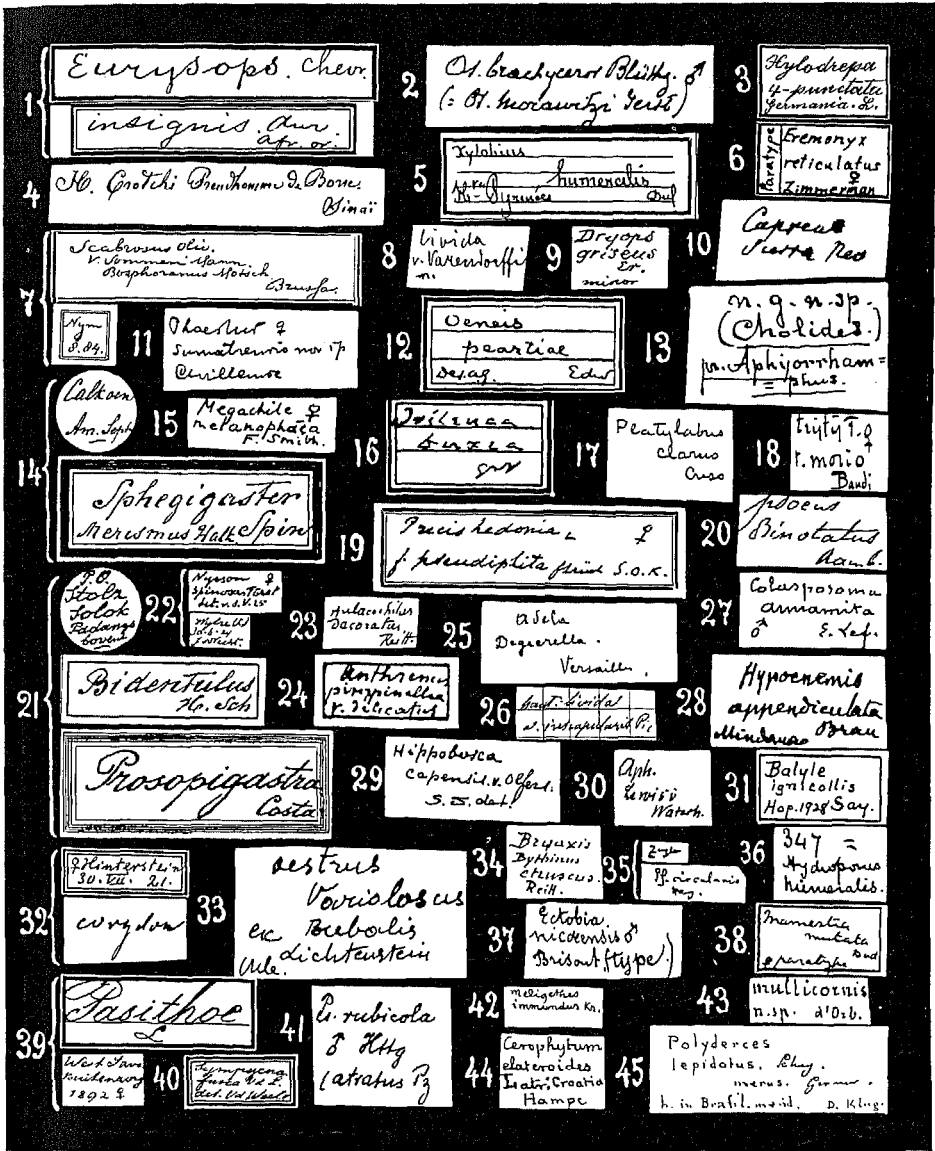 1
Eurysops. Chevr.
insignis. Aur.
Afr. or.
2
Ot. brachyceros Blüthg. ♂
(= Ot. Morawitzi Gerst)
3
Hylodrepa
4-punctata
Germania. L.
4
H. Crotchi Preudhomme de Borre.
Sinaï
5
Xylobius
humeralis
Htes Pyrénées Duf
6
Paratype
Eremonyx
reticulatus
Zimmerman
7
Scabrosus Oliv.
v. Sommeri Mann.
Bosphoranus Motsch
Brussa.
Nym
8.84.
8
livida
v. Varendorffi
m.
9
Dryops
griseus
Er.
minor
10
Capreae
Sierra Neo
11
♀
Sumatrensis nov sp
12
Oeneis
peartiae
Edw
13
n. g. n. sp.
(Cholides.)
pr. Aphyorrham=
= phus.
14
Calkoen
Am. Soph
Sphegigaster
Merismus Halk Spin
15
Megachile ♀
melanophaea
F. Smith.
16
17
Platylabus
clarus
Cress
18
t. morio
Baudi
19
Precis hedonia L ♀
f. pseudiplita S.O.K.
20
Psocus
Binotatus
Ramb.
21
P.O.
Stolz
Solok
Padangs
bovenl
Bidentulus
Hr. Sch
Prosopigastra
Costa
22
Nysson ♀
spinosus Först
det. v. d. V. 25
23
Aulacochilus
Decoratus
Reitt.
24
Anthrenus
pimpinellae
v. delicatus
25
Adela
Degeerella.
Versailles
26
livida
v. inscapularis Pic
27
Colasposoma
annamita
♂ E. Lef.
28
Hypocnemis
appendiculata
Mindanao Brau
29
Hippobosca
capensis. v. Olfers.
S. S. det.
30
Aph.
Lewisii
Waterh.
31
Batyle
ignicollis
Hop. 1928 Say.
32
♀ Hinterstein
30. VII. 21.
corydon
33
oestrus
Variolosus
ex Bubalis
Lichtenstein
34
Bryaxis
Bythinus
etruscus.
Reitt.
35
Pf. circularis
36
347 =
Hydroporus
humeralis.
37
Ectobia
nicaeensis ♂
Brisout (type)
38
Mamestra
mutata
Dod
♀ paratype
39
Pasithoe
L
West Java
Buitenzorg
1892 ♀
40
Sympycna
fusca V.d.L.
det. Vd Weele
41
C. rubicola
♂ Httg
(atratus Pz
42
Meligethes
immundus Kr.
43
multicornis
n.sp. d'Orb.
44
Cerophytum
elateroides
Latr. Croatia
Hampe
45
Polyderces
lepidotus. Klug.
merus. Germ.
h. in Brasil. merid. D. Klug.